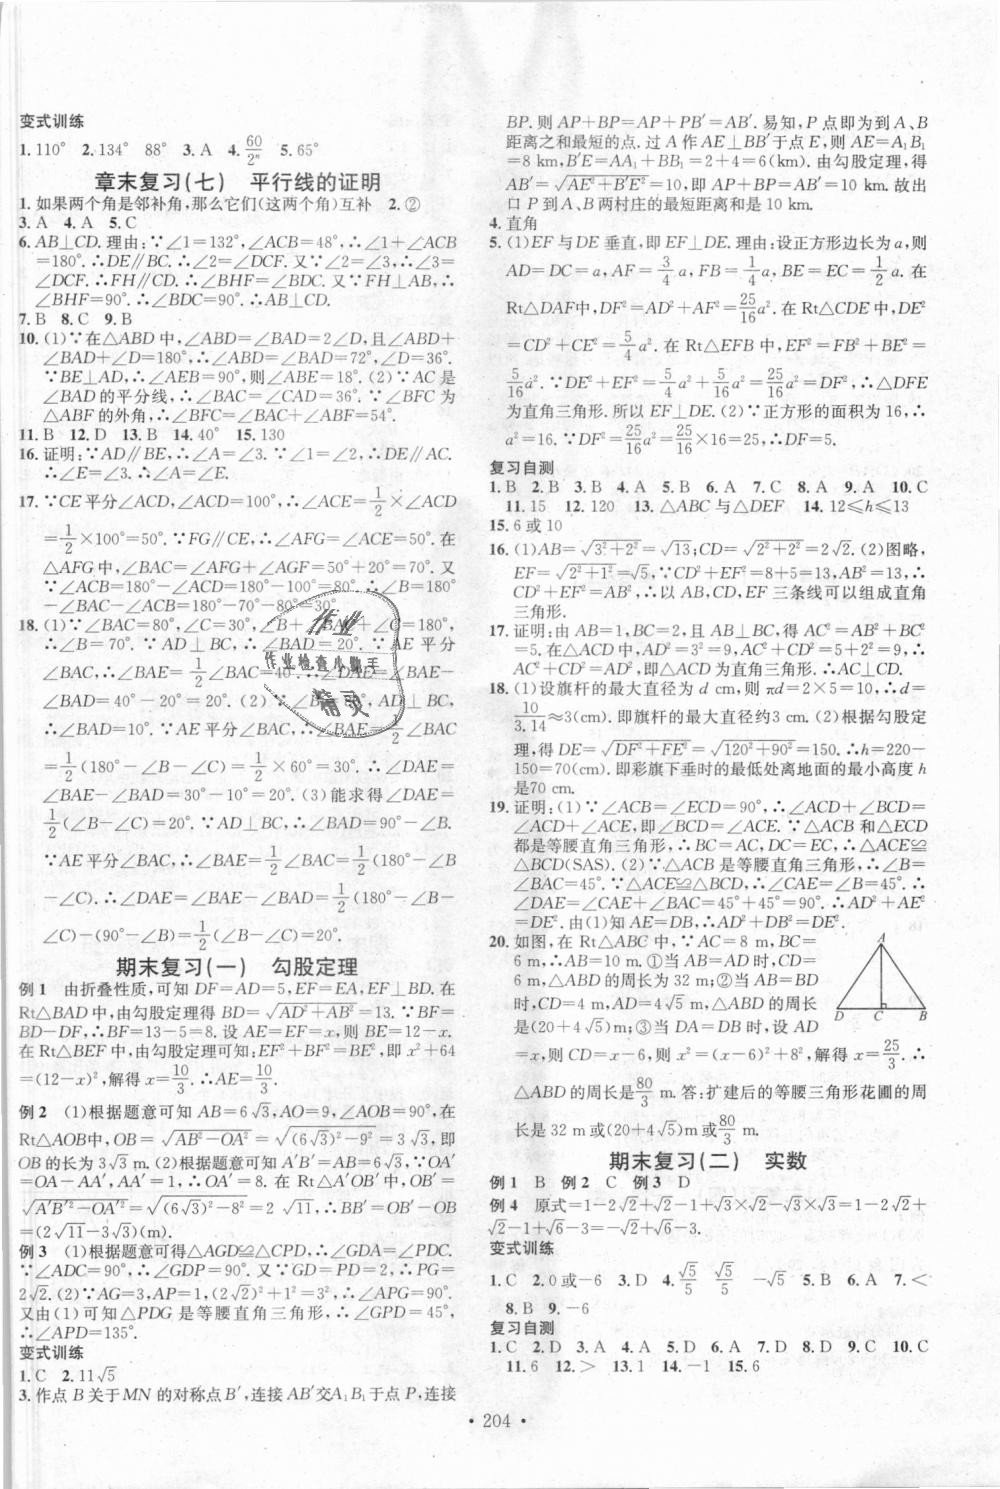 变式训练
1. 110° 2. 134° 88° 3. A 4. 60/2ⁿ 5. 65°
章末复习(七) 平行线的证明
1. 如果两个角是邻补角,那么它们(这两个角)互补 2. ②
3. A 4. A 5. C
6. AB⊥CD. 理由:∵∠1=132°,∠ACB=48°,∴∠1+∠ACB
=180°.∴DE∥BC.∴∠2=∠DCF. 又∵∠2=∠3,∴∠3=
∠DCF.∴FH∥CD.∴∠BHF=∠BDC. 又∵FH⊥AB,∴
∠BHF=90°.∴∠BDC=90°.∴AB⊥CD.
7. B 8. C 9. B
10. (1)∵在△ABD 中,∠ABD=∠BAD=2∠D,且∠ABD+
∠BAD+∠D=180°,∴∠ABD=∠BAD=72°,∠D=36°.
∵BE⊥AD,∴∠AEB=90°,则∠ABE=18°. (2)∵AC 是
∠BAD 的平分线,∴∠BAC=∠CAD=36°.∵∠BFC 为
△ABF 的外角,∴∠BFC=∠BAC+∠ABF=54°.
11. B 12. D 13. B 14. 40° 15. 130
16. 证明:∵AD∥BE,∴∠A=∠3.∵∠1=∠2,∴DE∥AC.
∴∠E=∠3.∴∠A=∠E.
17. ∵CE 平分∠ACD,∠ACD=100°,∴∠ACE=1/2×∠ACD
=1/2×100°=50°.∵FG∥CE,∴∠AFG=∠ACE=50°. 在
△AFG 中,∠BAC=∠AFG+∠AGF=50°+20°=70°. 又
∵∠ACB=180°-∠ACD=180°-100°=80°,∴∠B=180°
-∠BAC-∠ACB=180°-70°-80°=30°.
18. (1)∵∠BAC=80°,∠C=30°,∠B+∠BAC+∠C=180°,
∴∠B=70°.∵AD⊥BC,∴∠BAD=20°.∵AE 平分
∠BAC,∴∠BAE=1/2∠BAC=40°.∴∠DAE=∠BAE-
∠BAD=40°-20°=20°. (2)∵∠B=80°,AD⊥BC,
∴∠BAD=10°.∵AE 平分∠BAC,∴∠BAE=1/2∠BAC
=1/2(180°-∠B-∠C)=1/2×60°=30°.∴∠DAE=
∠BAE-∠BAD=30°-10°=20°. (3)能求得∠DAE=
1/2(∠B-∠C)=20°.∵AD⊥BC,∴∠BAD=90°-∠B.
∵AE 平分∠BAC,∴∠BAE=1/2∠BAC=1/2(180°-∠B
-∠C).∴∠DAE=∠BAE-∠BAD=1/2(180°-∠B-
∠C)-(90°-∠B)=1/2(∠B-∠C)=20°.
期末复习(一) 勾股定理
例 1 由折叠性质,可知 DF=AD=5,EF=EA,EF⊥BD. 在
Rt△BAD 中,由勾股定理得 BD=√(AD²+AB²)=13.∵BF=
BD-DF,∴BF=13-5=8. 设 AE=EF=x,则 BE=12-x.
在 Rt△BEF 中,由勾股定理可知:EF²+BF²=BE²,即 x²+64
=(12-x)²,解得 x=10/3.∴AE=10/3.
例 2 (1)根据题意可知 AB=6√3,AO=9,∠AOB=90°,在
Rt△AOB中,OB=√(AB²-OA²)=√((6√3)²-9²)=3√3,即
OB 的长为 3√3 m. (2)根据题意可知 A′B′=AB=6√3,∵OA′
=OA-AA′,AA′=1,∴OA′=8. 在 Rt△A′OB′中,OB′=
√(A′B′²-OA′²)=√((6√3)²-8²)=2√11,∴BB′=OB′-OB
=(2√11-3√3)(m).
例 3 (1)根据题意可得△AGD≌△CPD,∴∠GDA=∠PDC.
∵∠ADC=90°,∴∠GDP=90°. 又∵GD=PD=2,∴PG=
2√2. (2)∵AG=3,AP=1,(2√2)²+1²=3²,∴∠APG=90°.
又由(1)可知△PDG 是等腰直角三角形,∴∠GPD=45°,
∴∠APD=135°.
变式训练
1. C 2. 11√5
3. 作点 B 关于MN 的对称点 B′,连接 AB′交A₁B₁于点 P,连接
BP. 则 AP+BP=AP+PB′=AB′. 易知,P 点即为到 A、B
距离之和最短的点. 过 A 作 AE⊥BB′于点 E,则 AE=A₁B₁
=8 km,B′E=AA₁+BB₁=2+4=6(km). 由勾股定理,得
AB′=√(AE²+B′E²)=10,即 AP+BP=AB′=10 km. 故出
口 P 到 A、B 两村庄的最短距离和是 10 km.
4. 直角
5. (1)EF 与 DE 垂直,即 EF⊥DE. 理由:设正方形边长为 a,则
AD=DC=a,AF=3/4a,FB=1/4a,BE=EC=1/2a. 在
Rt△DAF中,DF²=AD²+AF²=25/16a². 在 Rt△CDE 中,DE²
=CD²+CE²=5/4a². 在 Rt△EFB 中,EF²=FB²+BE²=
5/16a².∵DE²+EF²=5/4a²+5/16a²=25/16a²=DF²,∴△DFE
为直角三角形. 所以 EF⊥DE. (2)∵正方形的面积为 16,∴
a²=16.∵DF²=25/16a²=25/16×16=25,∴DF=5.
复习自测
1. B 2. B 3. B 4. A 5. B 6. A 7. C 8. A 9. A 10. C
11. 15 12. 120 13. △ABC 与△DEF 14. 12≤h≤13
15. 6 或 10
16. (1)AB=√(3²+2²)=√13;CD=√(2²+2²)=2√2. (2)图略,
EF=√(2²+1²)=√5,∵CD²+EF²=8+5=13,AB²=13,∴
CD²+EF²=AB²,∴以 AB,CD,EF 三条线可以组成直角
三角形.
17. 证明:由 AB=1,BC=2,且 AB⊥BC,得 AC²=AB²+BC²
=5. 在△ACD 中,AD²=3²=9,AC²+CD²=5+2²=9,∴
AC²+CD²=AD²,即△ACD 为直角三角形.∴AC⊥CD.
18. (1)设旗杆的最大直径为 d cm,则 πd=2×5=10,∴d=
10/3.14≈3(cm). 即旗杆的最大直径约3 cm. (2)根据勾股定
理,得 DE=√(DF²+FE²)=√(120²+90²)=150.∴h=220-
150=70(cm). 即彩旗下垂时的最低处离地面的最小高度 h
是70 cm.
19. 证明:(1)∵∠ACB=∠ECD=90°,∴∠ACD+∠BCD=
∠ACD+∠ACE,即∠BCD=∠ACE.∵△ACB 和△ECD
都是等腰直角三角形,∴BC=AC,DC=EC,∴△ACE≌
△BCD(SAS). (2)∵△ACB 是等腰直角三角形,∴∠B=
∠BAC=45°.∵△ACE≌△BCD,∴∠CAE=∠B=45°.∴
∠DAE=∠CAE+∠BAC=45°+45°=90°.∴AD²+AE²
=DE². 由(1)知 AE=DB,∴AD²+DB²=DE².
20. 如图,在 Rt△ABC 中,∵AC=8 m,BC=
6 m,∴AB=10 m. ①当 AB=AD 时,CD=
6 m,△ABD 的周长为 32 m;②当 AB=BD
时,CD=4 m,AD=4√5 m,△ABD 的周长
是(20+4√5)m;③当 DA=DB 时,设 AD
=x,则 CD=x-6,则 x²=(x-6)²+8²,解得 x=25/3.∴
△ABD 的周长是80/3 m. 答:扩建后的等腰三角形花圃的周
长是 32 m 或(20+4√5)m或80/3 m.
A
D C B
期末复习(二) 实数
例 1 B 例 2 C 例 3 D
例 4 原式=1-2√2+√2-1+√3×√2-√3×√3=1-2√2+
√2-1+√6-3=-√2+√6-3.
变式训练
1. C 2. 0 或-6 3. D 4. √5/5 √5/5 -√5 5. B 6. A 7. <
8. B 9. -6
复习自测
1. C 2. D 3. A 4. C 5. D 6. A 7. D 8. D 9. C 10. C
11. 6 12. > 13. 1 14. -1 15. 6
作业
作业检查小助手
精灵
• 204 •